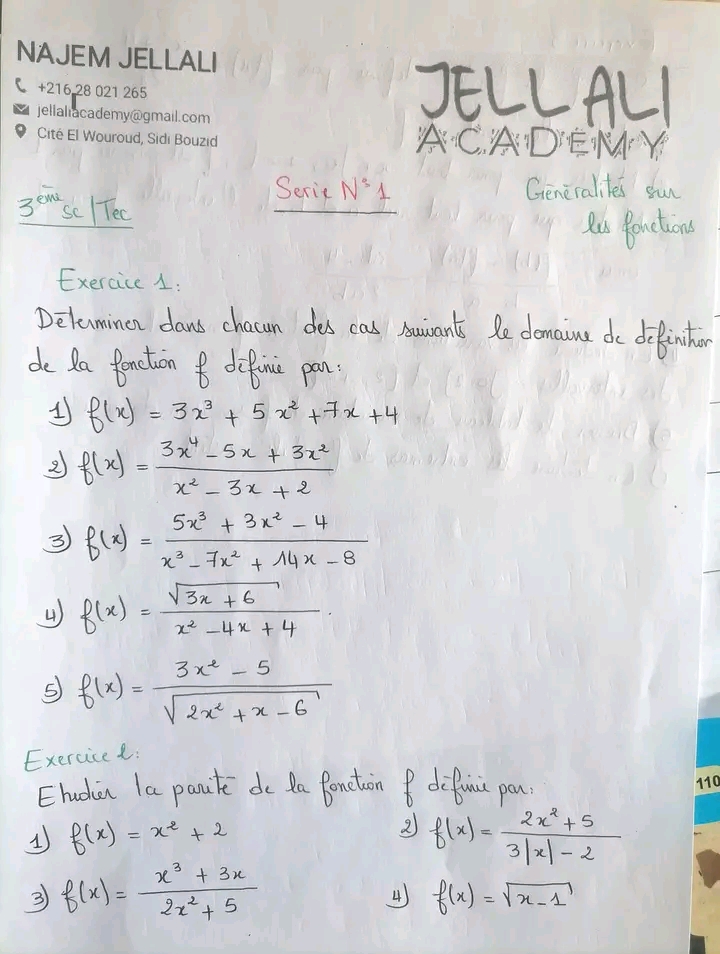 NAJEM JELLALI
+216 28 021 265
jellaliacademy@gmail.com
Cité El Wouroud, Sidi Bouzid
JELLALI
ACADEMY
3ème sc/Tec
Serie N°1
Généralités sur
les fonctions
Exercice 1:
Déterminer dans chacun des cas suivants le domaine de définition
de la fonction f définie par:
1) f(x) = 3x³ + 5x² + 7x + 4
2) f(x) = (3x⁴ - 5x + 3x²) / (x² - 3x + 2)
3) f(x) = (5x³ + 3x² - 4) / (x³ - 7x² + 14x - 8)
4) f(x) = √(3x + 6) / (x² - 4x + 4)
5) f(x) = (3x² - 5) / √(2x² + x - 6)
Exercice 2:
Etudier la parité de la fonction f définie par:
1) f(x) = x² + 2
2) f(x) = (2x² + 5) / (3|x| - 2)
3) f(x) = (x³ + 3x) / (2x² + 5)
4) f(x) = √(x - 1)
110